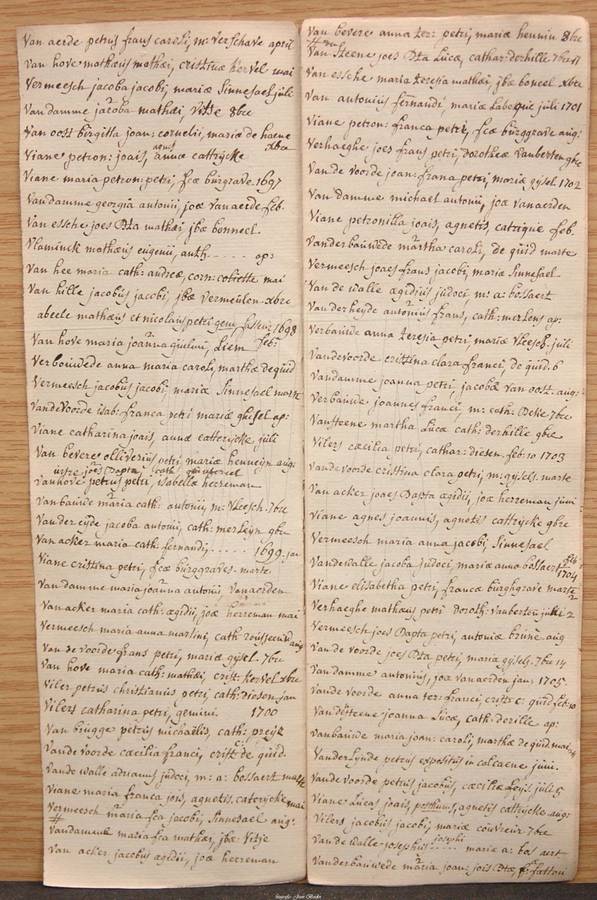 Van aerde petrus frans caroli, m: verschave april
Van hove mathæus mathæi, cristinæ kervel mai
Vermeesch jacoba jacobi, mariæ Sinnesael juli
Van damme jacoba mathæi Vitse 8bre
Van oost birgitta joan: cornelii, mariæ de haene xbre
Viane petron: joais, annæ cattrijcke
Viane maria petron: petri, fcæ burgrave. 1697
Van damme georgia antonii, joæ van aerde feb.
Van essche joes Bta mathæi jbæ bonneel.
Vlaminck mathæus eugenii, anth - - - - - ap:
Van hee maria cath: andreæ, corn: mai
Van hille jacobus jacobi, jbæ Vermeulen xbre
abeele mathæus et nicolaus petri gem, 1698
Van hove maria joanna guilmi, Liem feb:
Verbouwede anna maria caroli, marthæ de quid
Vermeesch jacobus jacobi, mariæ Sinnesael marte
Vande Voorde isab: franca petri mariæ ghisel ap:
Viane catharina joais, annæ catterijcke juli
Van bevere olliverius petri mariæ henneijn aug:
joes Bapta, cath:
Van hove petrus petri isabellæ herreman
Van bauwe maria cath: antonii, m: Vleesch. 7bre
Van der eyde jacoba antonii, cath: merleijn 9bre
Van acker maria cath: fernandi - - - - - 1699. jan
Viane cristina petri, fcæ burggraves. marte
Van damme maria joanna antonii vanaerden
Van acker maria cath: ægidii, joæ herreman mai
Vermeesch maria anna martini, cath: aug
Van de voorde frans petri, mariæ gijsel. 7bre
Van hove maria cath: mathæi, crist: kervel xbre
Viler petrus christianus petri, cath: dieson jan
Vilers catharina petri, gemini. 1700
Van brugge petrus michaëlis, cath: preijs
Vande Voorde cæcilia franci, crist: de quid.
Vande walle adrianus judoci, m: a: bossaert marte
Viane maria franca jois, agnetis. caterijcke mai
Vermeesch maria fca jacobi, Sinnesael aug:
#
Vandamme maria fca mathæi, jbæ Vitse
Van acker jacobus ægidii, joæ herreman
Van bevere anna ter: petri, mariæ hennin 8bre
Van Steene joes Bta Lucæ, cathar: derhille 7bre
Van essche maria teresia mathæi, jbæ boneel xbre
Van antonius fernandi, mariæ Labeque juli 1701
Viane petron: franca petri, fcæ burggrave aug:
Verhaeghe joes frans petri, dorotheæ Vanberten 9bre
Van de voorde joan: frana petri, mariæ gijsel 1702
Van damme michael antonii, joæ van aerden
Viane petronilla joais, agnetis, catrique feb.
Vanderbauwede martha caroli, de quid marte
Vermeesch joaes frans jacobi, maria Sinnesael
Van de walle ægidius judoci, m: a: bossaert
Van der heyde antonius frans, cath: merlens ap:
Verbauwe anna teresia petri, mariæ Vleesch. juli
Van de voorde cristina clara franci, de quid. 6
Vandamme joanna petri, jacobæ Van oost. aug:
Verbauwe joannes franci, m: cath: Deke 7bre
Van steene martha Lucæ cath: derhille 9bre
Vilers cæcilia petri, cathar: diesen. feb: 10 1703
Vande voorde cristina clara petri, m: gijsels. marte
Van acker joaes Bapta ægidii, joæ herreman juni
Viane agnes joannis, agnetis cattrijcke 9bre
Vermeesch maria anna jacobi, Sinnesael
Vandewalle jacoba judoci, mariæ annæ bossaert feb 1704
Viane elisabetha petri, francæ burghgrave marte
Verhaeghe mathæus petri Doroth: vanberten juli 2
Vermeesch joes Bapta petri, antoniæ brune aug
Van de voorde joes Bta petri, maria gijsels. 7bre 14
Van damme antonius, joæ van aerden jan: 1705.
Vande Voorde anna ter: franci, crist: c: quid feb: 10
Van dijsteene joanna Lucæ, cath: derille ap:
Van bauwe maria joan: caroli, marthæ de quid mai
Vanderlynde petrus expositus in calcaene juni.
Vande voorde petrus jacobus, cæciliæ juli 5
Viane Lucas joais, posthumus, agnetis cattrijcke aug:
Vilers jacobus jacobi, mariæ couvreur 7bre
Van de walle josephus - - - - - josephi maria a: bossaert
Vanderbauwede maria joan: jois Btæ,